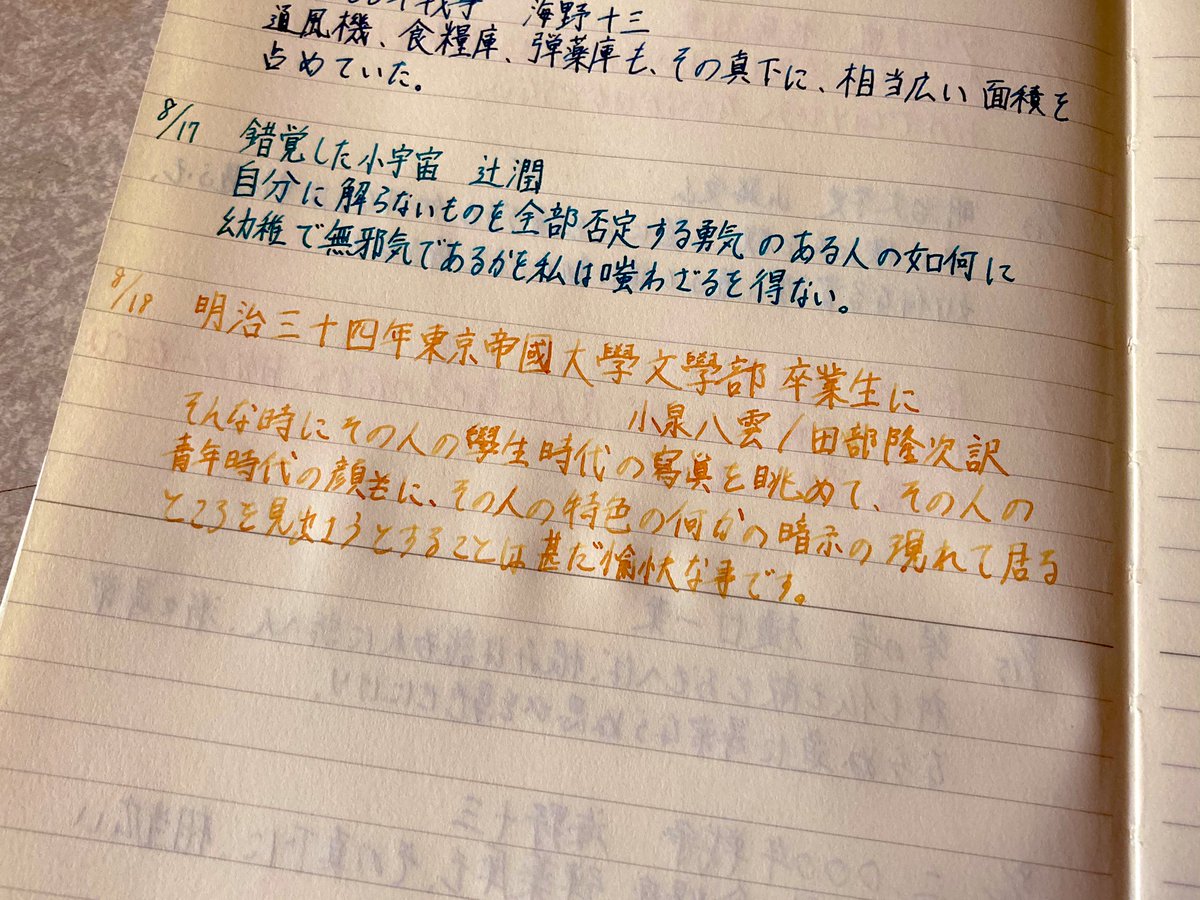 海野十三
通風機、食糧庫、弾薬庫も、その真下に、相当広い面積を
占めていた。
8/17 錯覚した小宇宙 辻潤
自分に解らないものを全部否定する勇気のある人の如何に
幼稚で無邪気であるかを私は嗤わざるを得ない。
8/18 明治三十四年東京帝國大學文學部卒業生に
小泉八雲/田部隆次訳
そんな時にその人の學生時代の寫真を眺めて、その人の
青年時代の顔に、その人の特色の何かの暗示の現れて居る
ところを見出さうとすることは甚だ愉快な事です。